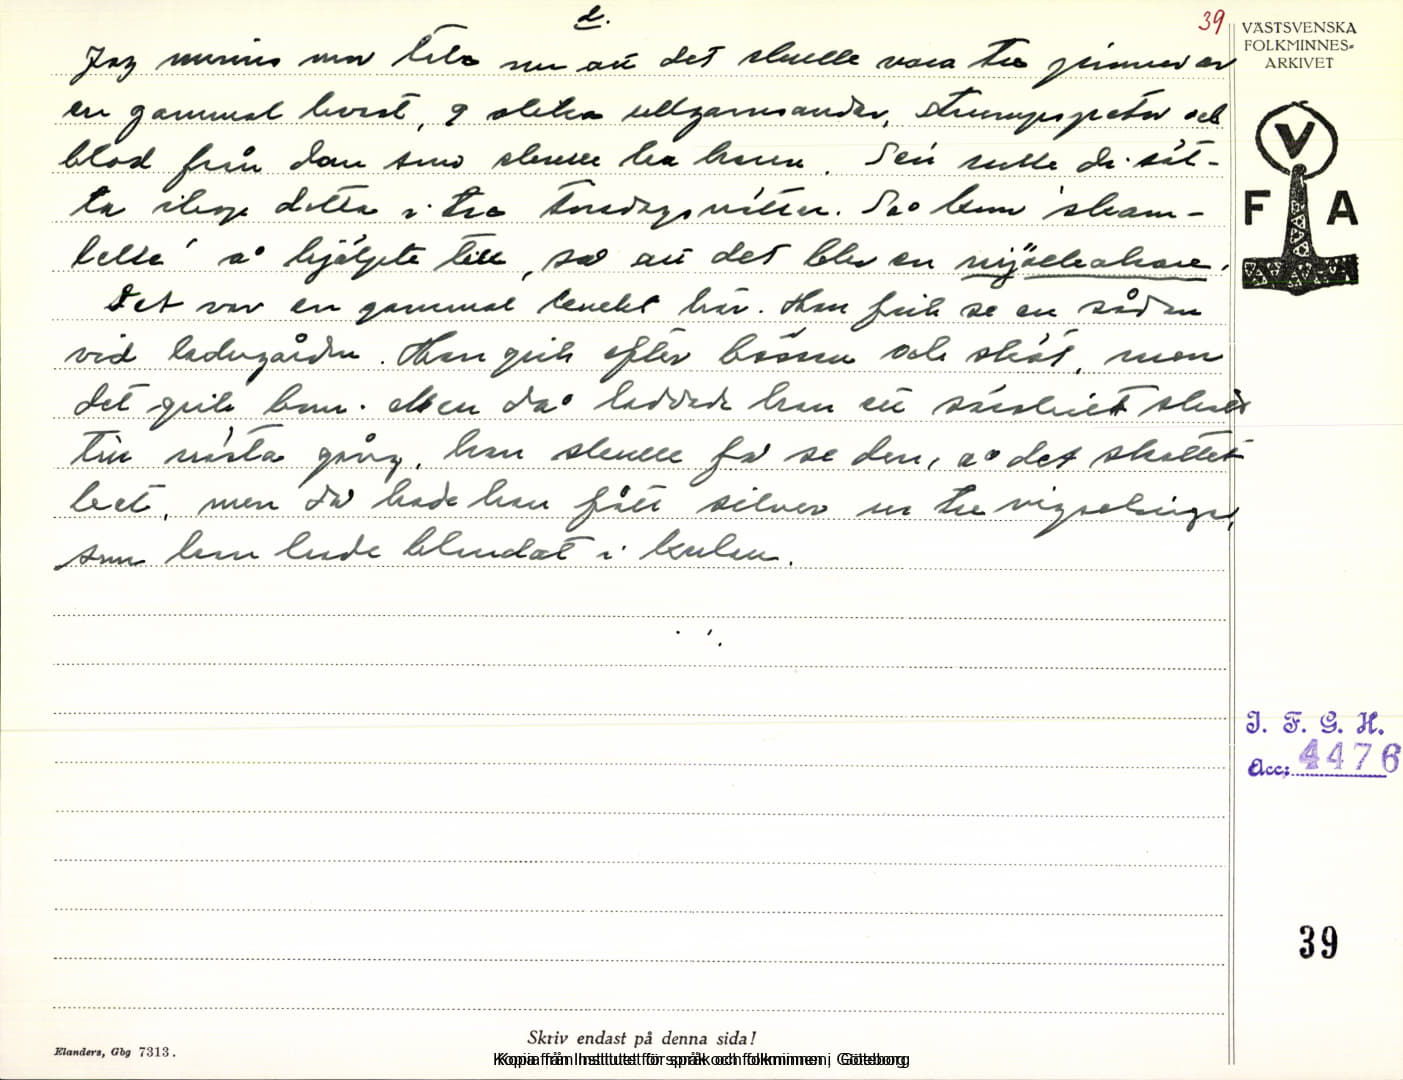 2.
39
VÄSTSVENSKA
FOLKMINNES-
ARKIVET
Jag minns mor tala om att det skulle vara tre pinnar av
en gammal kvast, 9 slitna ullgarnsandar, strumpspetar och
blod från dom som skulle ha haren. Sen skulle di sät-
ta ihop detta i tre torsdagsnätter. Så kom 'skam-
så hjälpte till, så att det blev en mjölkahare.
Det var en gammal knekt här. Han fick se en sådan
vid ladugården. Han gick efter bössan och sköt, men
det gick bom. Men då laddade han ett särskilt skott
till nästa gång, han skulle få se den, å det skottet
bet, men då hade han fått silver ur tre vigselringar,
som han hade blandat i kulan.
V
F A
I. F. G. H.
Acc: 4476
39
Skriv endast på denna sida!
Elanders, Gbg 7313.
Kopia från Institutet för språk och folkminnen i Göteborg